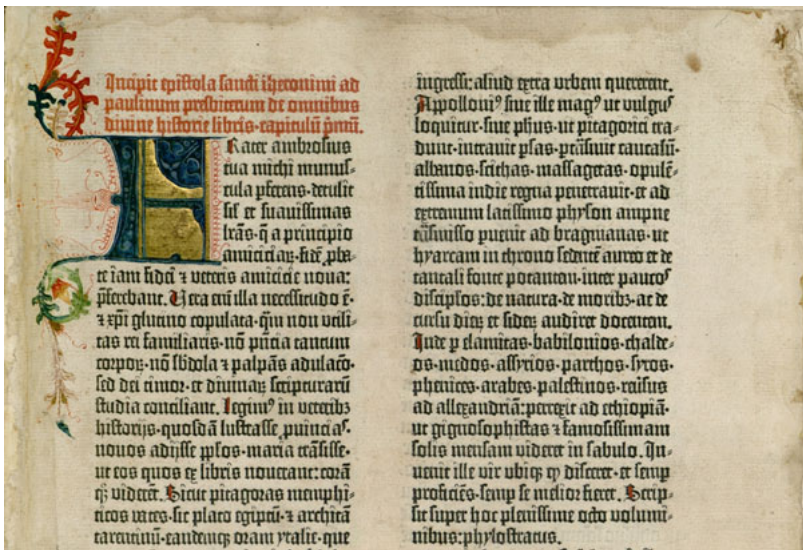 Incipit epistola sancti iheronimi ad
paulinum presbiterum de omnibus
divine historie libris·capitulū p̄mū.
Frater ambrosius
tua michi munus-
cula ꝑferens·detulit
sil̛ et suavissimas
lr̄as·q̄ a principio
amiciciaꝝ·fidē ꝓba-
te iam fidei ⁊ veteris amicicie nova:
p̄ferebant. Vera eni̅ illa necessitudo ē·
⁊ xp̄i glutino copulata·qm̄ non utili-
tas rei familiaris·nō pn̄cia tantum
corpoꝝ·nō sb̄dola ⁊ palpās adulacō·
sed dei timor·et divinaꝝ scripturarū
studia conciliant. Legimꝰ in veteribꝫ
historijs·quosdā lustrasse ꝓuincias·
novos adijsse ppl̄os·maria trāsisse·
ut eos quos ex libris noverant: corā
qꝫ viderēt. Sicut pitagoras memphi-
ticos vates·sic plato egiptū·⁊ architā
tarentinū·eandemqꝫ oram ytalie·que
ingressi: aliud extra urbem quererent.
Appolloniꝰ sive ille magꝰ ut vulgus
loquitur·sive ph̄us·ut pitagorici tra-
dunt·intravit ꝑsas·ptrāsivit caucasū·
albanos·scithas·massagetas·opulē-
tissima indie regna penetravit·et ad
extremum latissimo physon ampne
trāsmisso ꝑvenit ad bragmanas·ut
hyarcam in throno sedentē aureo et de
tantali fonte potantem·inter paucos
discipl̄os·de natura·de moribꝫ ac de
cursu dieꝝ et sideꝝ audiret docentem.
Inde ꝑ elamitas·babilonios·chalde-
os·medos·assyrios·parthos·syros·
phenices·arabes·palestinos·reversus
ad allexandriā: perrexit ad ethiopiā·
ut gignosophistas ⁊ famosissimam
solis mensam videret in sabulo. In-
venit ille vir ubiqꝫ qꝫ disceret·et semꝑ
proficiēs·semꝑ se melior fieret. Scrip-
sit super hoc plenissime octo volumi-
nibus: phylostratus.